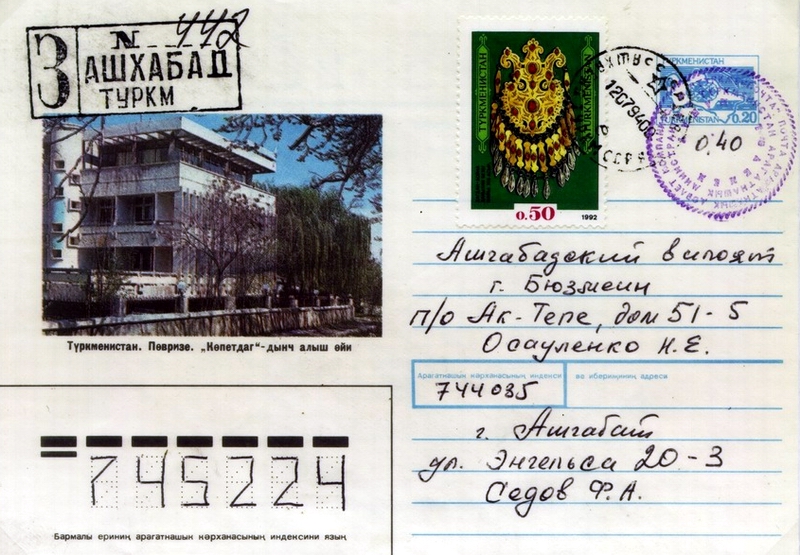 З
N 442
АШХАБАД
ТУРКМ
ТҮРКМЕНИСТАН
TÜRKMENISTAN
0.50
1992
ТҮРКМЕНИСТАН
TÜRKMENISTAN
0.20
0,40
Түркменистан. Пөвризе. „Көпетдаг“-дынч алыш өйи
Ашгабадский вилоят
г. Бюзмеин
п/о Ак-Тепе, дом 51-5
Осауленко Н.Е.
Арагатнашык кәрханасының индекси
ве ибериҗиниң адреси
744035
г. Ашгабат
ул. Энгельса 20-3
Седов Ф.А.
745224
Бармалы ериниң арагатнашык кәрханасының индексини язың